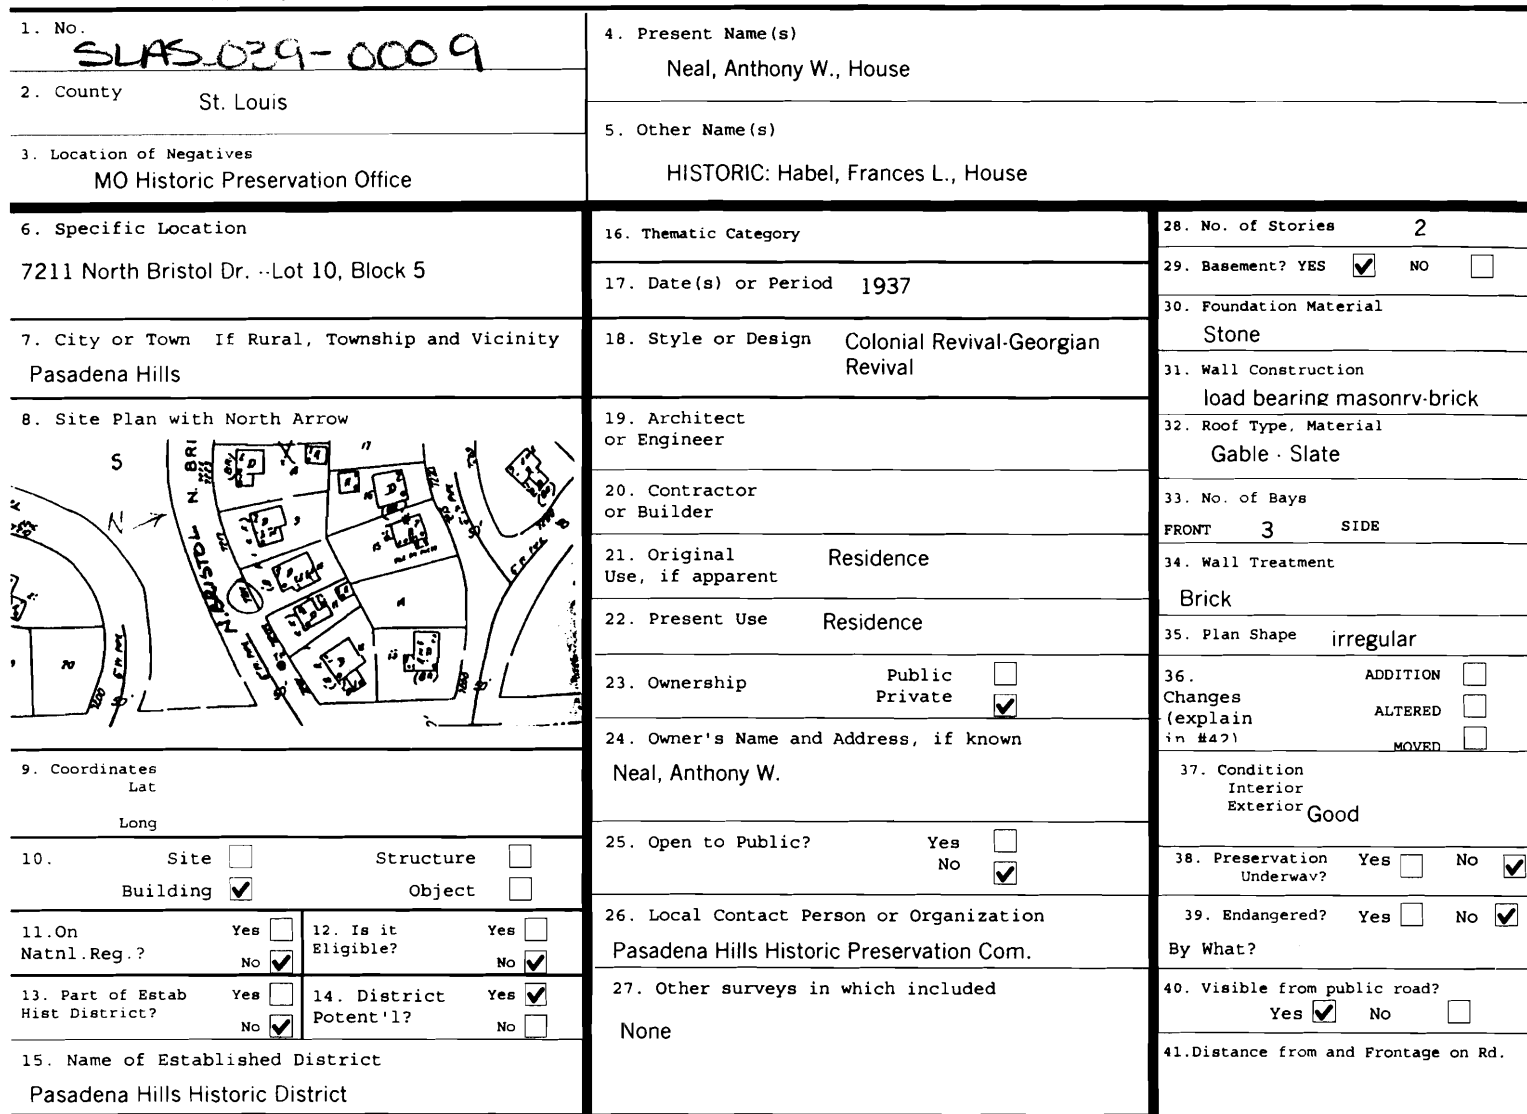 1. No.
SLAS-039-0009
2. County
St. Louis
3. Location of Negatives
MO Historic Preservation Office
4. Present Name(s)
Neal, Anthony W., House
5. Other Name(s)
HISTORIC: Habel, Frances L., House
6. Specific Location
7211 North Bristol Dr. --Lot 10, Block 5
7. City or Town If Rural, Township and Vicinity
Pasadena Hills
8. Site Plan with North Arrow
S
N
N. BRI
N. BRISTOL
9. Coordinates
Lat
Long
10. Site Structure
Building Object
11.On Yes
Natnl.Reg.? No
12. Is it Yes
Eligible? No
13. Part of Estab Yes
Hist District? No
14. District Yes
Potent'l? No
15. Name of Established District
Pasadena Hills Historic District
16. Thematic Category
17. Date(s) or Period 1937
18. Style or Design Colonial Revival-Georgian
Revival
19. Architect
or Engineer
20. Contractor
or Builder
21. Original Residence
Use, if apparent
22. Present Use Residence
23. Ownership Public
Private
24. Owner's Name and Address, if known
Neal, Anthony W.
25. Open to Public? Yes
No
26. Local Contact Person or Organization
Pasadena Hills Historic Preservation Com.
27. Other surveys in which included
None
28. No. of Stories 2
29. Basement? YES NO
30. Foundation Material
Stone
31. Wall Construction
load bearing masonry-brick
32. Roof Type, Material
Gable - Slate
33. No. of Bays
FRONT 3 SIDE
34. Wall Treatment
Brick
35. Plan Shape irregular
36. ADDITION
Changes
(explain ALTERED
in #42) MOVED
37. Condition
Interior
Exterior Good
38. Preservation Yes No
Underway?
39. Endangered? Yes No
By What?
40. Visible from public road?
Yes No
41.Distance from and Frontage on Rd.